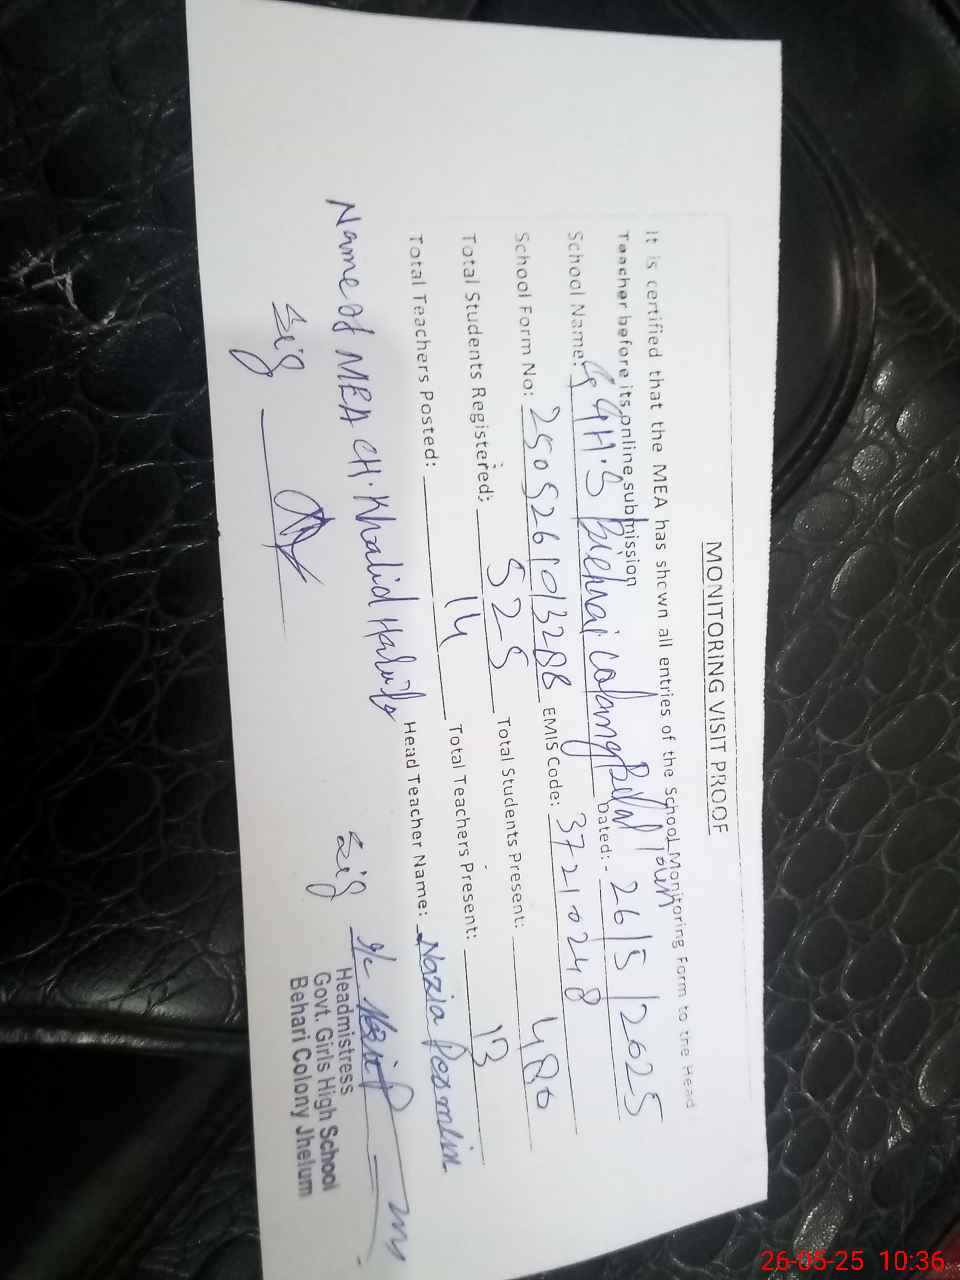 MONITORING VISIT PROOF
It is certified that the MEA has shown all entries of the School Monitoring Form to the Head
Teacher before its online submission
School Name: G G H.S Biehrai colony Bilal Town Dated:- 26/5/2025
School Form No: 2505261913288 EMIS Code: 37210248
Total Students Registered: 525 Total Students Present: 480
Total Teachers Posted: 14 Total Teachers Present: 13
Head Teacher Name: Nazia
Name of MEA CH. Khalid
Sig
Sig
Headmistress
Govt. Girls High School
Behari Colony Jhelum
26-05-25 10:36